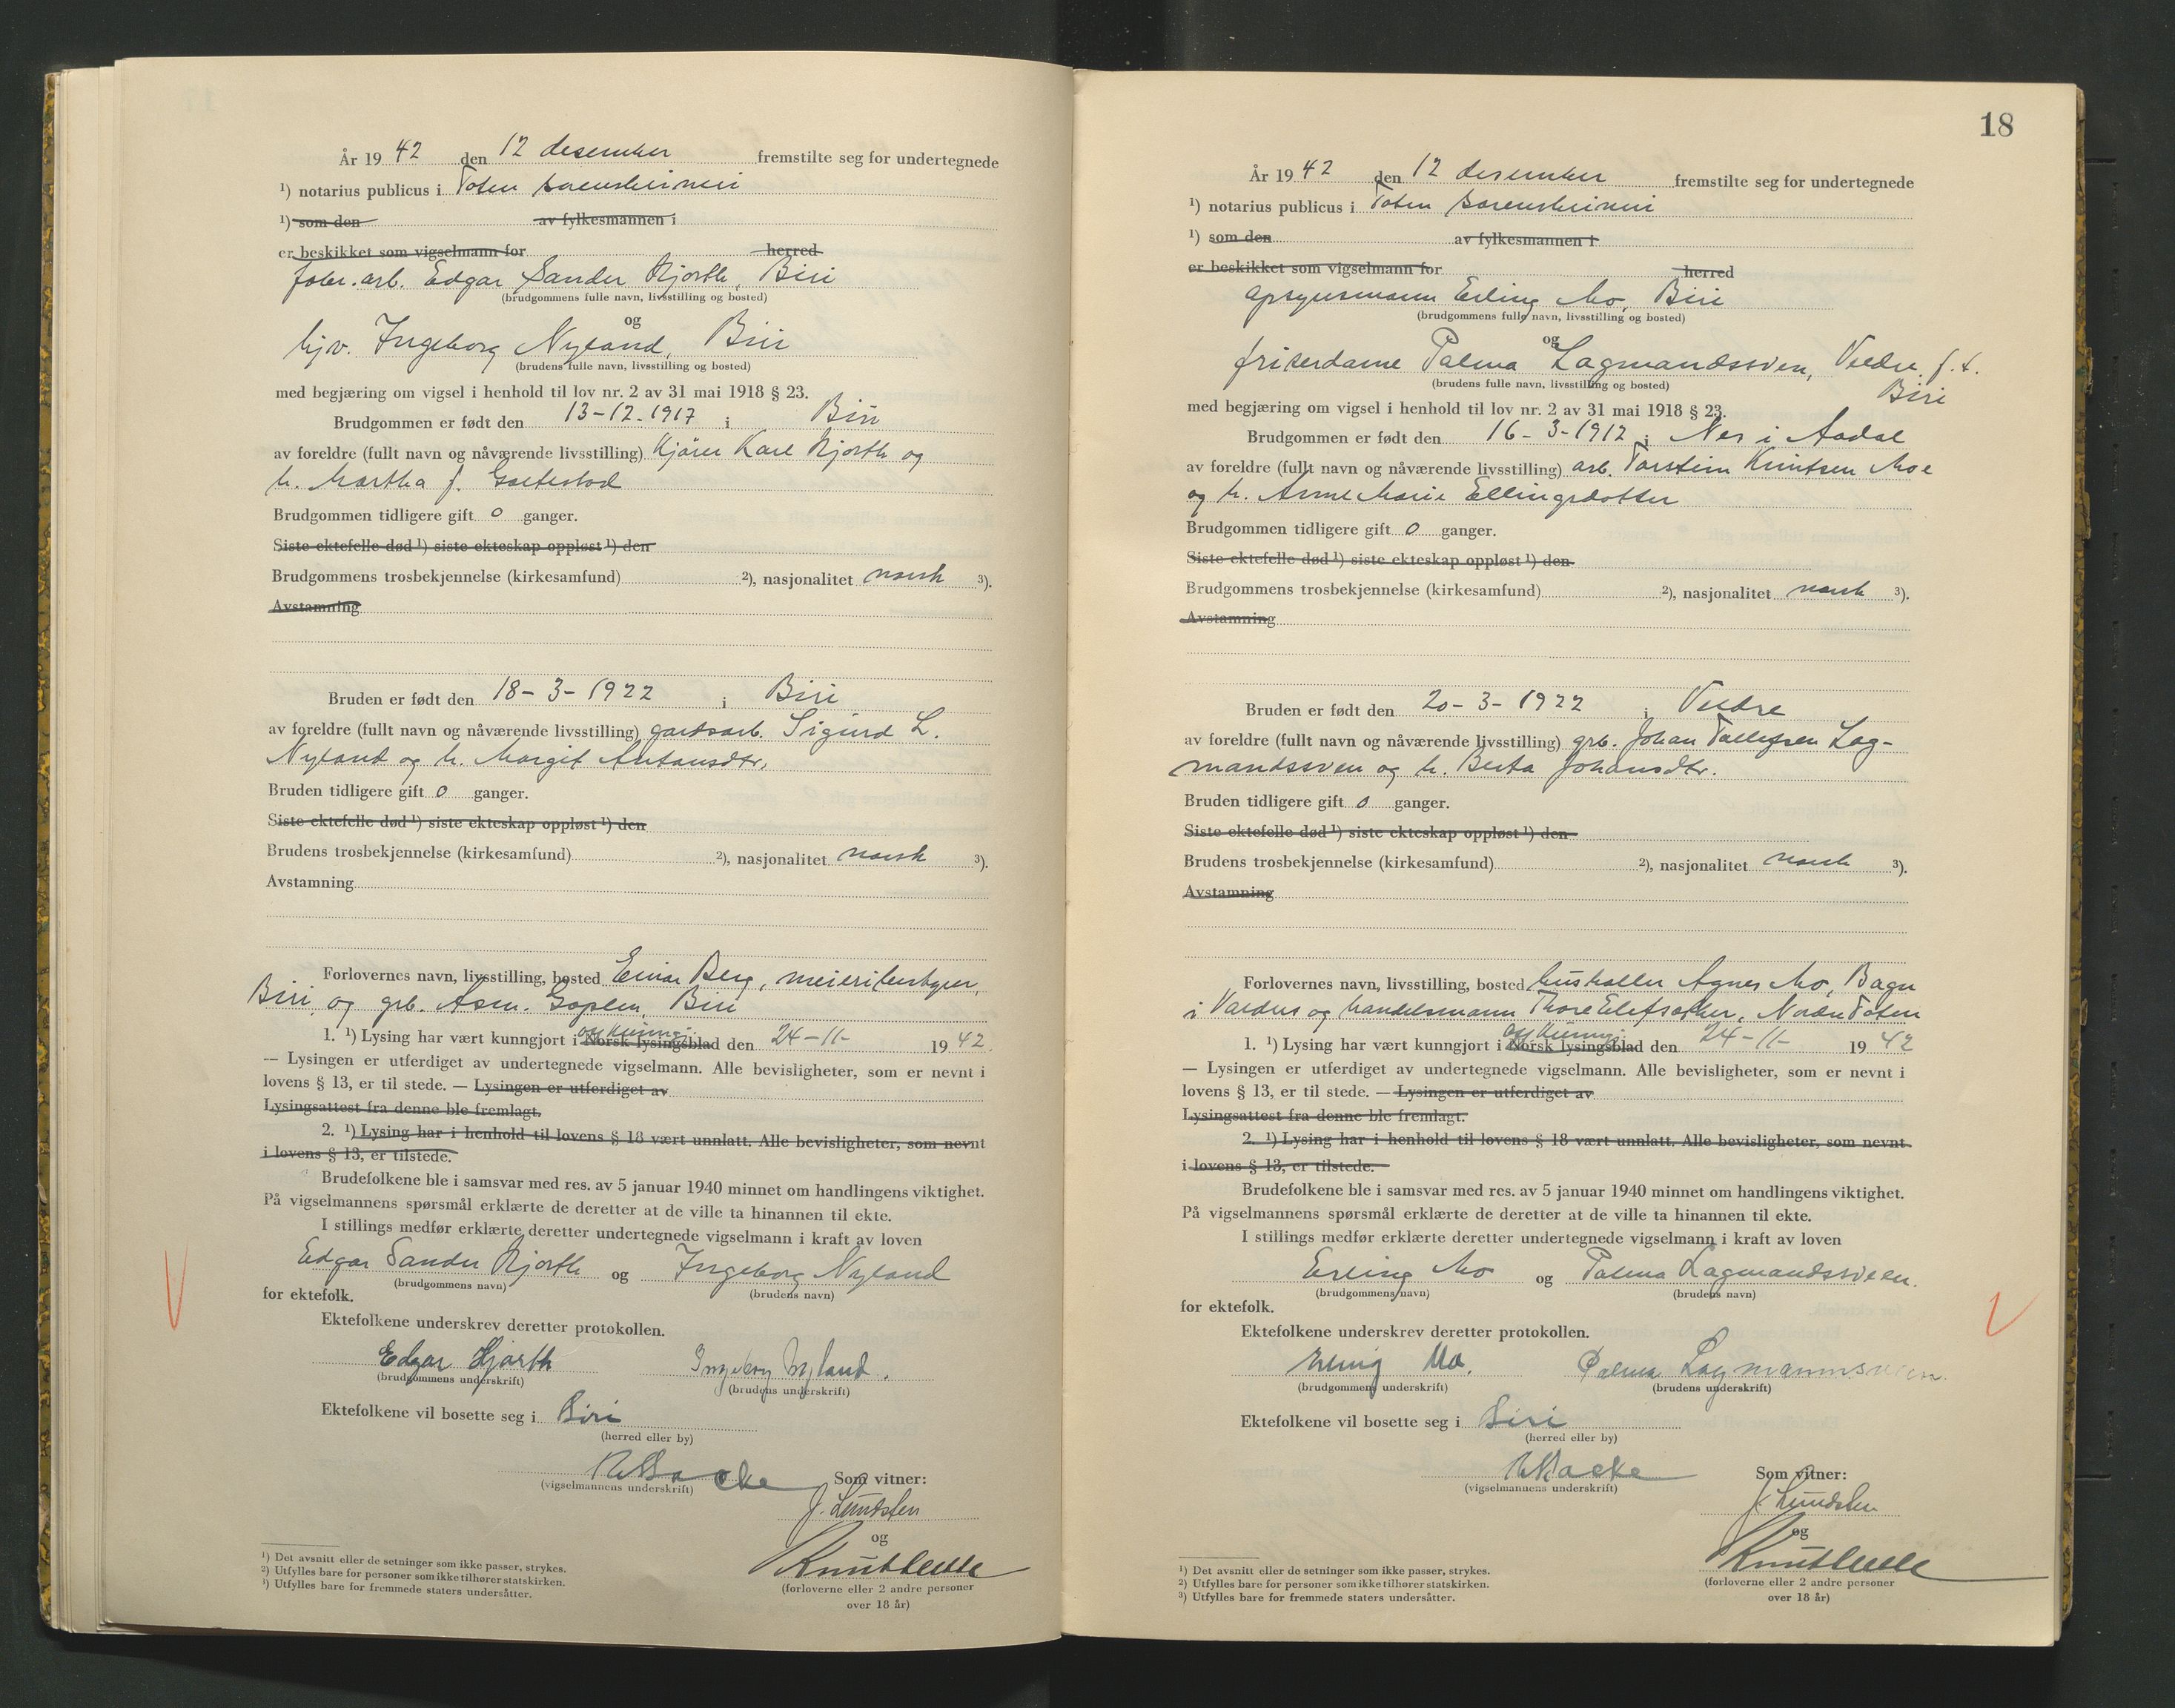 År 19 42 den 12 desember fremstilte seg for undertegnede
¹) notarius publicus i Toten sorenskriveri
¹) som den av fylkesmannen i
er beskikket som vigselmann for herred
fabr. arb. Edgar Sander Hjorth, Biri
(brudgommens fulle navn, livsstilling og bosted)
og
hjv. Ingeborg Nyland, Biri
(brudens fulle navn, livsstilling og bosted)
med begjæring om vigsel i henhold til lov nr. 2 av 31 mai 1918 § 23.
Brudgommen er født den 13-12-1917 i Biri
av foreldre (fullt navn og nåværende livsstilling) kjører Karl Hjorth og
h. Martha f.
Brudgommen tidligere gift 0 ganger.
Siste ektefelle død ¹) siste ekteskap oppløst ¹) den
Brudgommens trosbekjennelse (kirkesamfund) ²), nasjonalitet norsk ³).
Avstamning
Bruden er født den 18-3-1922 i Biri
av foreldre (fullt navn og nåværende livsstilling) gardsarb. Sigurd L.
Nyland og h. Margit Antonsdtr.
Bruden tidligere gift 0 ganger.
Siste ektefelle død ¹) siste ekteskap oppløst ¹) den
Brudens trosbekjennelse (kirkesamfund) ²), nasjonalitet norsk ³).
Avstamning
Forlovernes navn, livsstilling, bosted Einar Berg, meieribestyrer,
Biri, og grb. Asm. Goplen, Biri
1. ¹) Lysing har vært kunngjort i Norsk lysingsblad off. kunngj. den 24-11- 19 42.
— Lysingen er utferdiget av undertegnede vigselmann. Alle bevisligheter, som er nevnt i
lovens § 13, er til stede. — Lysingen er utferdiget av
Lysingsattest fra denne ble fremlagt.
2. ¹) Lysing har i henhold til lovens § 18 vært unnlatt. Alle bevisligheter, som nevnt
i lovens § 13, er tilstede.
Brudefolkene ble i samsvar med res. av 5 januar 1940 minnet om handlingens viktighet.
På vigselmannens spørsmål erklærte de deretter at de ville ta hinannen til ekte.
I stillings medfør erklærte deretter undertegnede vigselmann i kraft av loven
Edgar Sander Hjorth og Ingeborg Nyland
(brudgommens navn) (brudens navn)
for ektefolk.
Ektefolkene underskrev deretter protokollen.
Edgar Hjorth Ingeborg Nyland.
(brudgommens underskrift) (brudens underskrift)
Ektefolkene vil bosette seg i Biri
(herred eller by)
(vigselmannens underskrift) Som vitner:
J. Lundsten
og
(forloverne eller 2 andre personer
over 18 år)
¹) Det avsnitt eller de setninger som ikke passer, strykes.
²) Utfylles bare for personer som ikke tilhører statskirken.
³) Utfylles bare for fremmede staters undersåtter.
18
År 19 42 den 12 desember fremstilte seg for undertegnede
¹) notarius publicus i Toten sorenskriveri
¹) som den av fylkesmannen i
er beskikket som vigselmann for herred
opsynsmann Erling Mo, Biri
(brudgommens fulle navn, livsstilling og bosted)
og
friserdame Palma Lagmandssven, Veldre, f. t.
Biri
(brudens fulle navn, livsstilling og bosted)
med begjæring om vigsel i henhold til lov nr. 2 av 31 mai 1918 § 23.
Brudgommen er født den 16-3-1912 i Nes i Aadal
av foreldre (fullt navn og nåværende livsstilling) arb. Torstein Knutsen Moe
og h. Anne Marie Ellingsdotter
Brudgommen tidligere gift 0 ganger.
Siste ektefelle død ¹) siste ekteskap oppløst ¹) den
Brudgommens trosbekjennelse (kirkesamfund) ²), nasjonalitet norsk ³).
Avstamning
Bruden er født den 20-3-1922 i Veldre
av foreldre (fullt navn og nåværende livsstilling) grb. Johan Tollefsen Lag-
mandssven og h. Berta Johansdtr.
Bruden tidligere gift 0 ganger.
Siste ektefelle død ¹) siste ekteskap oppløst ¹) den
Brudens trosbekjennelse (kirkesamfund) ²), nasjonalitet norsk ³).
Avstamning
Forlovernes navn, livsstilling, bosted Agnes Mo, Bagn
i Valdres og handelsmann Thore, Nordre Toten
1. ¹) Lysing har vært kunngjort i Norsk lysingsblad off. kunngj. den 24-11- 19 42
— Lysingen er utferdiget av undertegnede vigselmann. Alle bevisligheter, som er nevnt i
lovens § 13, er til stede. — Lysingen er utferdiget av
Lysingsattest fra denne ble fremlagt.
2. ¹) Lysing har i henhold til lovens § 18 vært unnlatt. Alle bevisligheter, som nevnt
i lovens § 13, er tilstede.
Brudefolkene ble i samsvar med res. av 5 januar 1940 minnet om handlingens viktighet.
På vigselmannens spørsmål erklærte de deretter at de ville ta hinannen til ekte.
I stillings medfør erklærte deretter undertegnede vigselmann i kraft av loven
Erling Mo og Palma Lagmandssveen.
(brudgommens navn) (brudens navn)
for ektefolk.
Ektefolkene underskrev deretter protokollen.
Erling Mo. Palma Lagmannsveen.
(brudgommens underskrift) (brudens underskrift)
Ektefolkene vil bosette seg i Biri
(herred eller by)
(vigselmannens underskrift) Som vitner:
J. Lundsten
og
(forloverne eller 2 andre personer
over 18 år)
¹) Det avsnitt eller de setninger som ikke passer, strykes.
²) Utfylles bare for personer som ikke tilhører statskirken.
³) Utfylles bare for fremmede staters undersåtter.